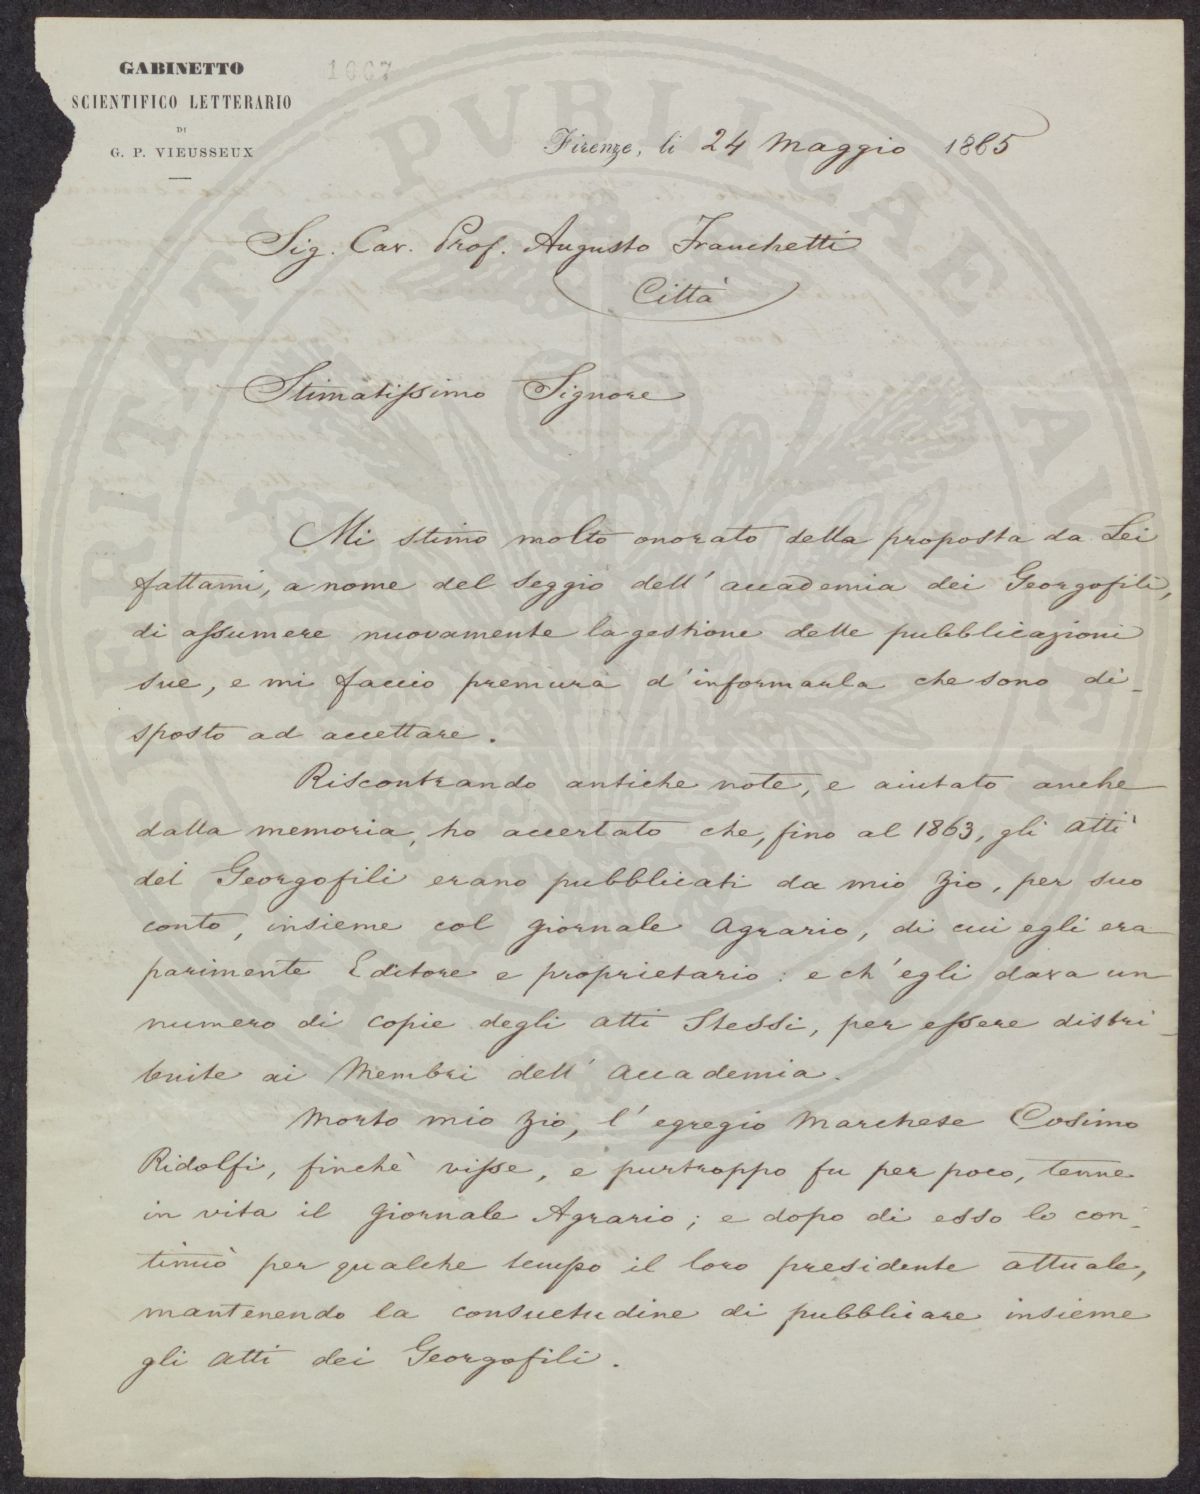 GABINETTO
SCIENTIFICO LETTERARIO
DI
G. P. VIEUSSEUX
1667
Firenze, li 24 Maggio 1885
Sig. Cav. Prof. Augusto Franchetti
Città
Stimatissimo Signore
Mi stimo molto onorato della proposta da Lei
fattami, a nome del Seggio dell' accademia dei Georgofili,
di assumere nuovamente la gestione delle pubblicazioni
sue, e mi faccio premura d'informarla che sono di-
sposto ad accettare.
Riscontrando antiche note, e aiutato anche
dalla memoria, ho accertato che, fino al 1863, gli atti
dei Georgofili erano pubblicati da mio zio, per suo
conto, insieme col giornale Agrario, di cui egli era
parimente Editore e proprietario: e ch'egli dava un
numero di copie degli atti Stessi, per essere distri-
buite ai Membri dell' Accademia.
Morto mio zio, l'egregio Marchese Cosimo
Ridolfi, finchè visse, e purtroppo fu per poco, tenne
in vita il giornale Agrario; e dopo di esso lo con-
tinuò per qualche tempo il loro presidente attuale,
mantenendo la consuetudine di pubblicare insieme
gli atti dei Georgofili.
PVBLICAE